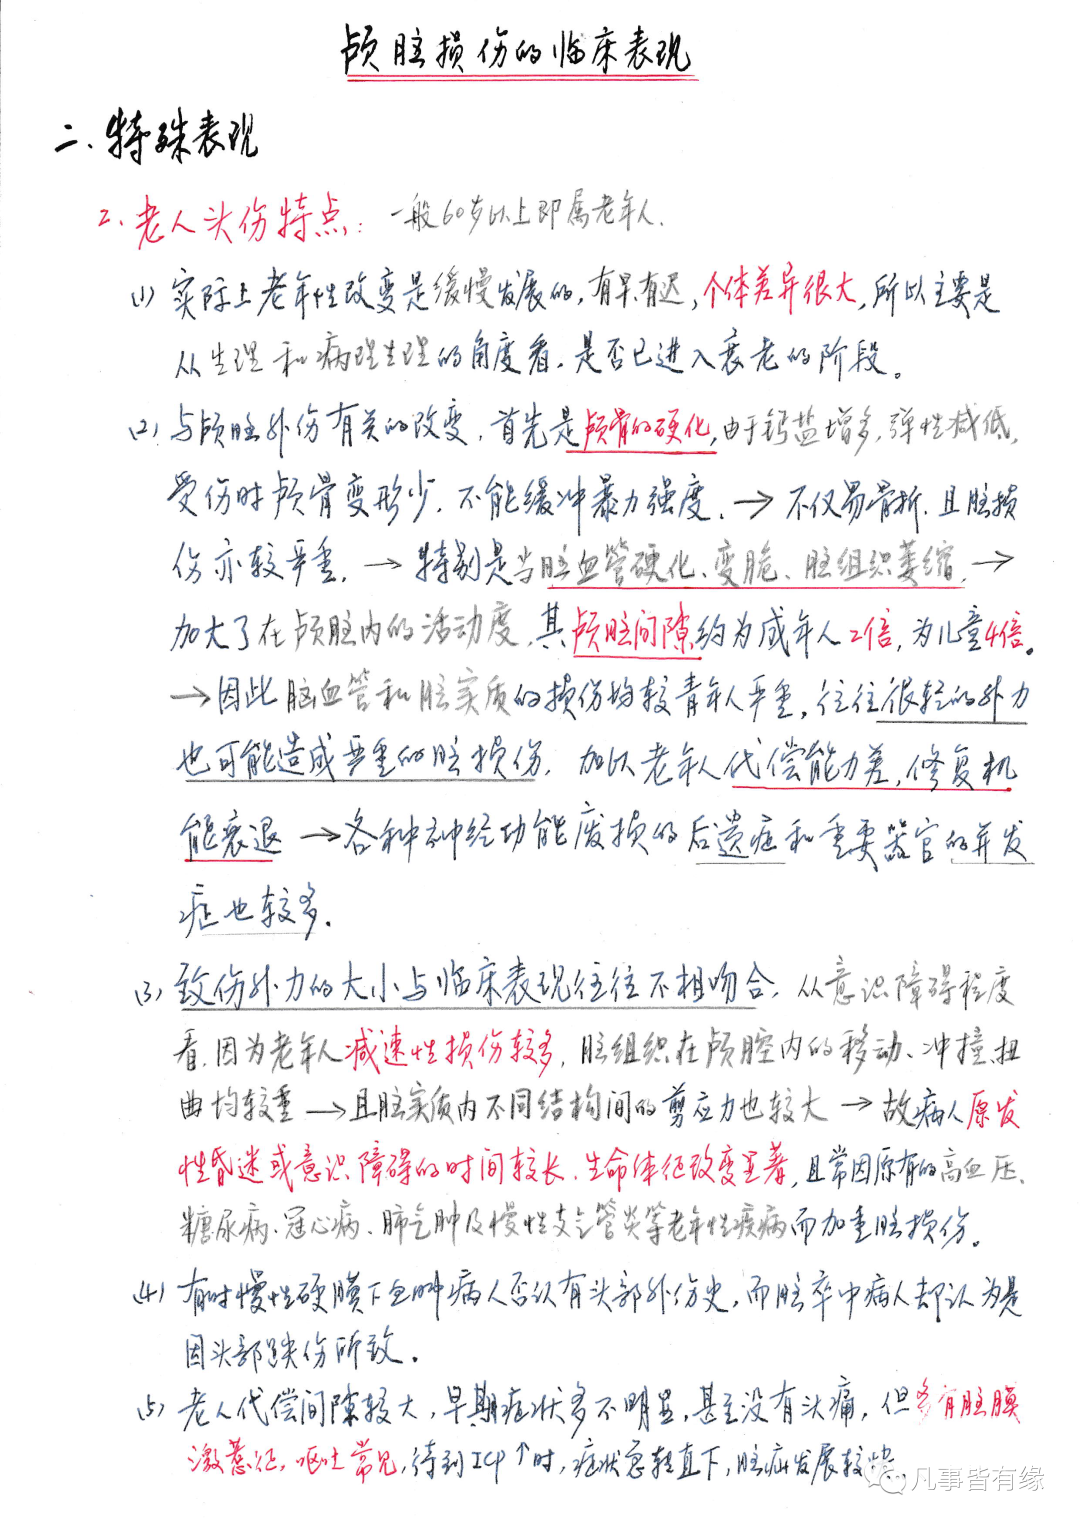 颅脑损伤的临床表现
二、特殊表现
2. 老人头伤特点：一般60岁以上即属老年人.
(1) 实际上老年性改变是缓慢发展的，有早有迟，个体差异很大，所以主要是
从生理和病理生理的角度看，是否已进入衰老的阶段。
(2) 与颅脑外伤有关的改变，首先是颅骨的硬化，由于钙盐增多，弹性减低，
受伤时颅骨变形少，不能缓冲暴力强度，→不仅易骨折，且脑损
伤亦较严重，→特别是当脑血管硬化、变脆、脑组织萎缩，→
加大了在颅腔内的活动度，其颅脑间隙约为成年人2倍，为儿童4倍。
→因此脑血管和脑实质的损伤均较青年人严重，往往很轻的外力
也可能造成严重的脑损伤，加以老年人代偿能力差，修复机
能衰退→各种神经功能废损的后遗症和重要器官的并发
症也较多.
(3) 致伤外力的大小与临床表现往往不相吻合，从意识障碍程度
看，因为老年人减速性损伤较多，脑组织在颅腔内的移动、冲撞、扭
曲均较重→且脑实质内不同结构间的剪应力也较大→故病人原发
性昏迷或意识障碍的时间较长、生命体征改变显著，且常因原有的高血压、
糖尿病、冠心病、肺气肿及慢性支气管炎等老年性疾病而加重脑损伤。
(4) 有时慢性硬膜下血肿病人否认有头部外伤史，而脑卒中病人却认为是
因头部跌伤所致.
(5) 老人代偿间隙较大，早期症状多不明显，甚至没有头痛，但多有脑膜
激惹征，呕吐常见，待到ICP↑时，症状急转直下，脑疝发展较
凡事皆有缘